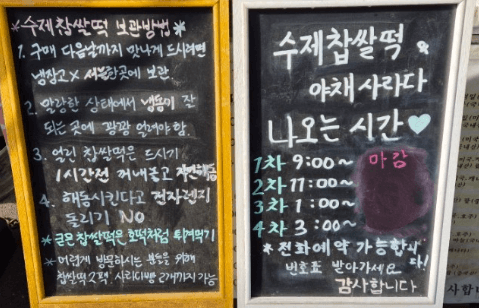 *수제찹쌀떡 보관방법*
1. 구매 다음날까지 맛나게 드시려면
냉장고X 서늘한곳에 보관.
2. 말랑한 상태에서 냉동이 잘
되는 곳에 꽝꽝 얼려야함.
3. 얼린 찹쌀떡은 드시기
1시간전 꺼내놓고 자연해동
4. 해동시킨다고 전자렌지
돌리기 NO
*굳은 찹쌀떡은 호떡처럼 튀겨먹기
*어렵게 방문하시는 분들을 위해
찹쌀떡2팩 사라다빵 2개까지 가능
수제찹쌀떡 &
야채 사라다
나오는 시간♥
1차 9:00~ 마감
2차 11:00~
3차 1:00~
4차 3:00~
*전화예약 가능합니다!
번호표 받아가세요
감사합니다